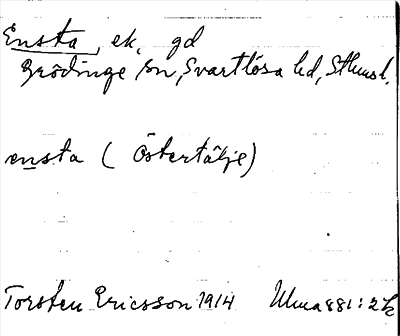 Ensta, ek, gd
Grödinge sn, Svartlösa hd, Sthms l.
ensta (Östertälje)
Torsten Ericsson 1914 Ulma 881:2